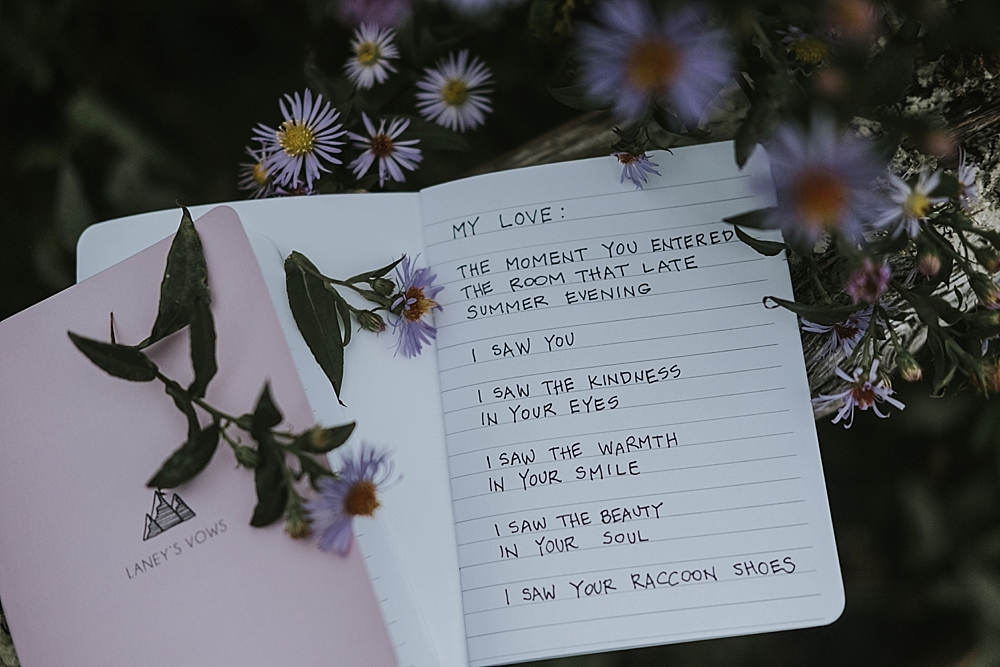 MY LOVE:
THE MOMENT YOU ENTERED
THE ROOM THAT LATE
SUMMER EVENING
I SAW YOU
I SAW THE KINDNESS
IN YOUR EYES
I SAW THE WARMTH
IN YOUR SMILE
I SAW THE BEAUTY
IN YOUR SOUL
I SAW YOUR RACCOON SHOES
LANEY'S VOWS